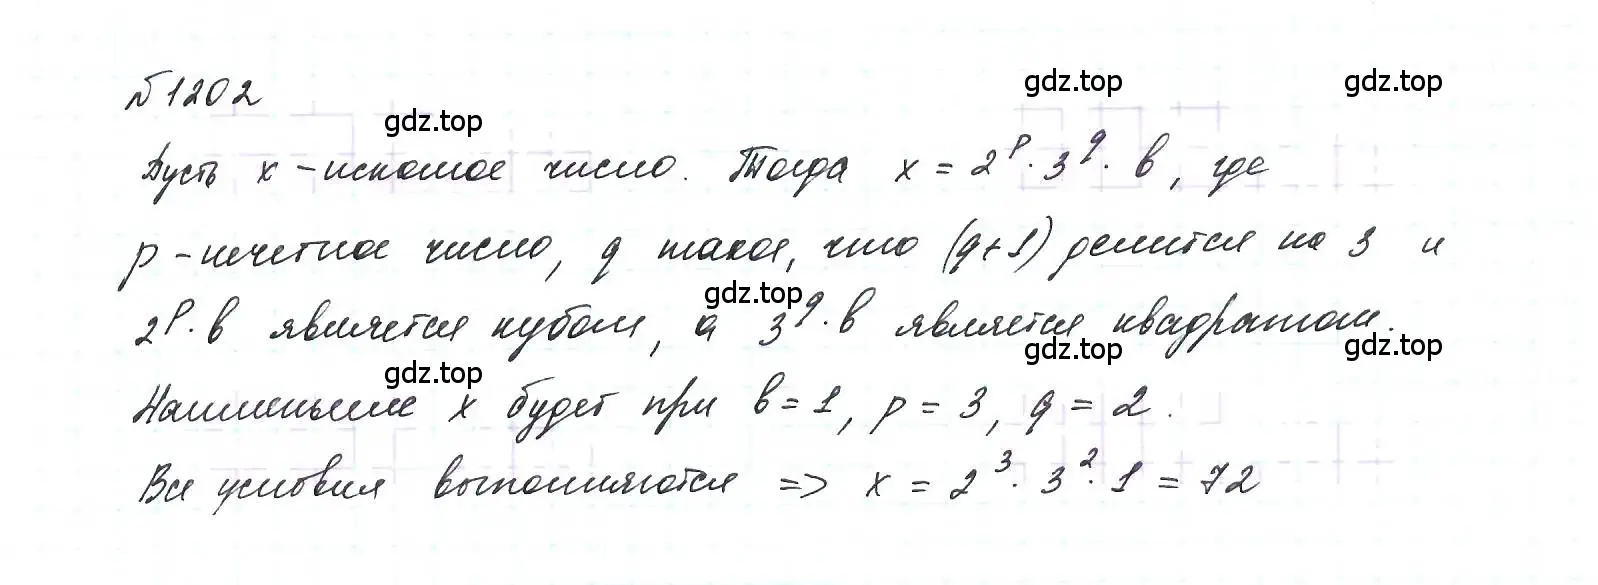 №1202
gdz.top
gdz.top
gdz.top
Пусть x - искомое число. Тогда x = 2^p · 3^q · b, где
p - нечетное число, q такое, что (q+1) делится на 3 и
gdz.top
2^p · b является кубом, а 3^q · b является квадратом.
gdz.top
gdz.top
gdz.top
Наименьшее x будет при b = 1, p = 3, q = 2.
Все условия выполняются => x = 2^3 · 3^2 · 1 = 72